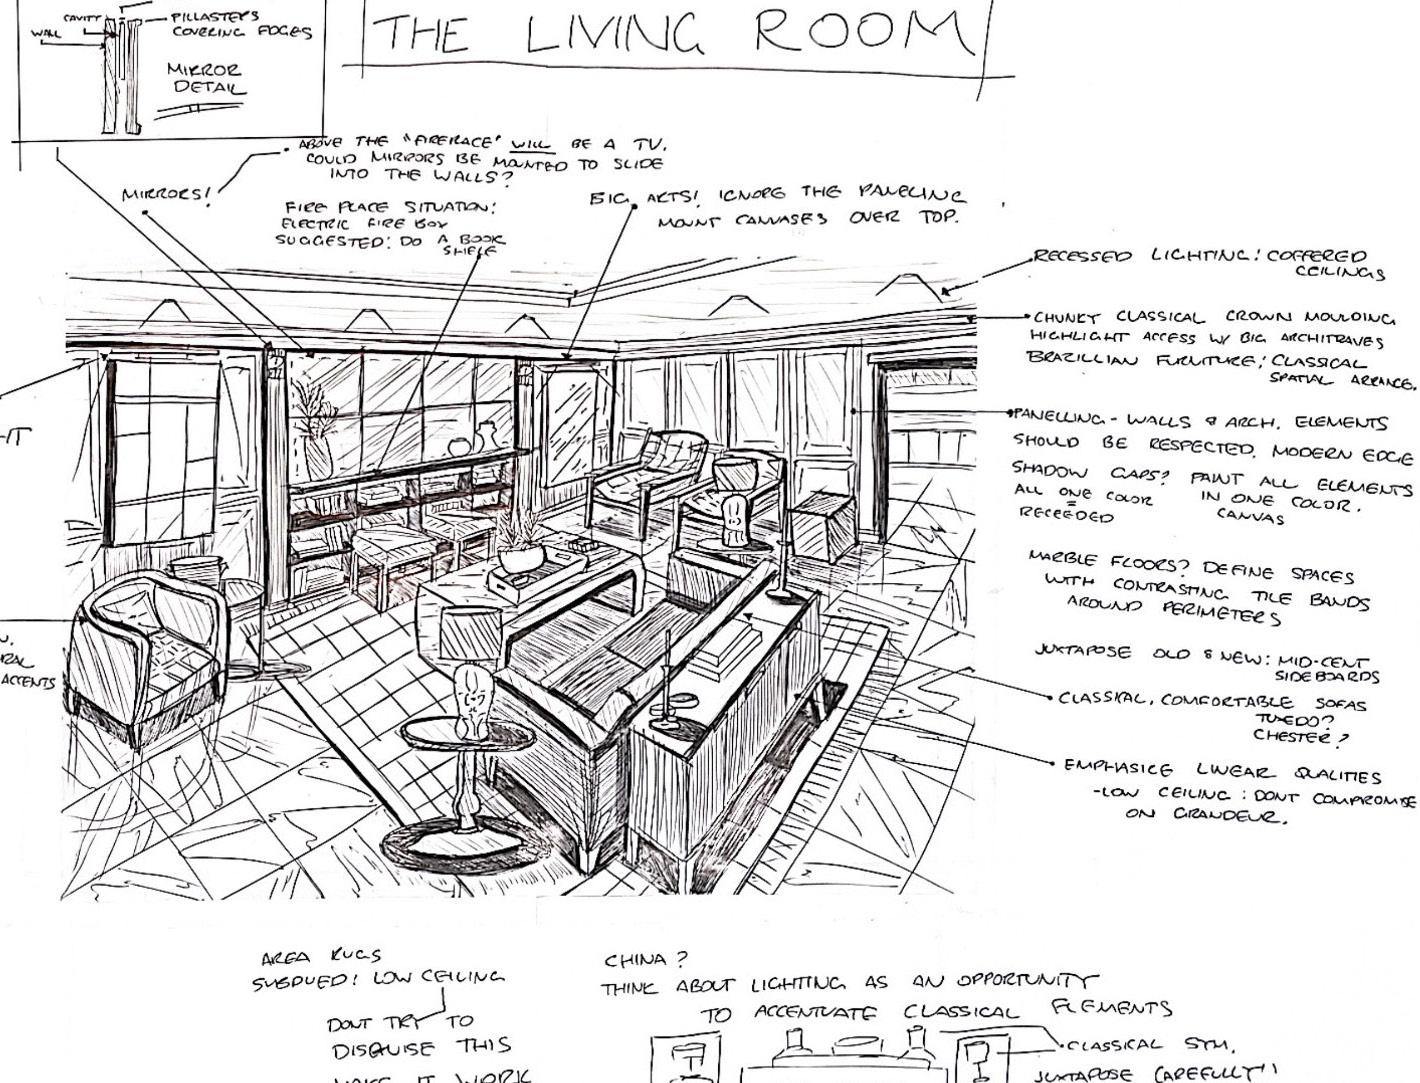 CAVITY
WALL
PILLASTERS
COVERING EDGES
MIRROR
DETAIL
THE LIVING ROOM
ABOVE THE "FIREPLACE" WILL BE A TV.
COULD MIRRORS BE MOUNTED TO SLIDE
INTO THE WALLS?
MIRRORS!
FIRE PLACE SITUATION!
ELECTRIC FIRE BOX
SUGGESTED! DO A BOOK
SHELF
BIG ARTS! IGNORE THE PANELING
MOUNT CANVASES OVER TOP.
RECESSED LIGHTING! COFFERED
CEILINGS
CHUNKY CLASSICAL CROWN MOULDING
HIGHLIGHT ACCESS W/ BIG ARCHITRAVES
BRAZILLIAN FURNITURE; CLASSICAL
SPATIAL ARRANGE.
PANELLING - WALLS & ARCH. ELEMENTS
SHOULD BE RESPECTED. MODERN EDGE
SHADOW GAPS? PAINT ALL ELEMENTS
ALL ONE COLOR IN ONE COLOR.
RECEEDED CANVAS
MARBLE FLOORS? DEFINE SPACES
WITH CONTRASTING TILE BANDS
AROUND PERIMETERS
JUXTAPOSE OLD & NEW: MID-CENT
SIDEBOARDS
CLASSICAL, COMFORTABLE SOFAS
TUXEDO?
CHESTER?
EMPHASICE LINEAR QUALITIES
-LOW CEILING: DONT COMPROMISE
ON GRANDEUR.
-IT
RAL
ACCENTS
AREA RUGS
SUBDUED! LOW CEILING
DONT TRY TO
DISGUISE THIS
MAKE IT WORK
CHINA?
THINK ABOUT LIGHTING AS AN OPPORTUNITY
TO ACCENTUATE CLASSICAL ELEMENTS
CLASSICAL SYM.
JUXTAPOSE CAREFULLY!!